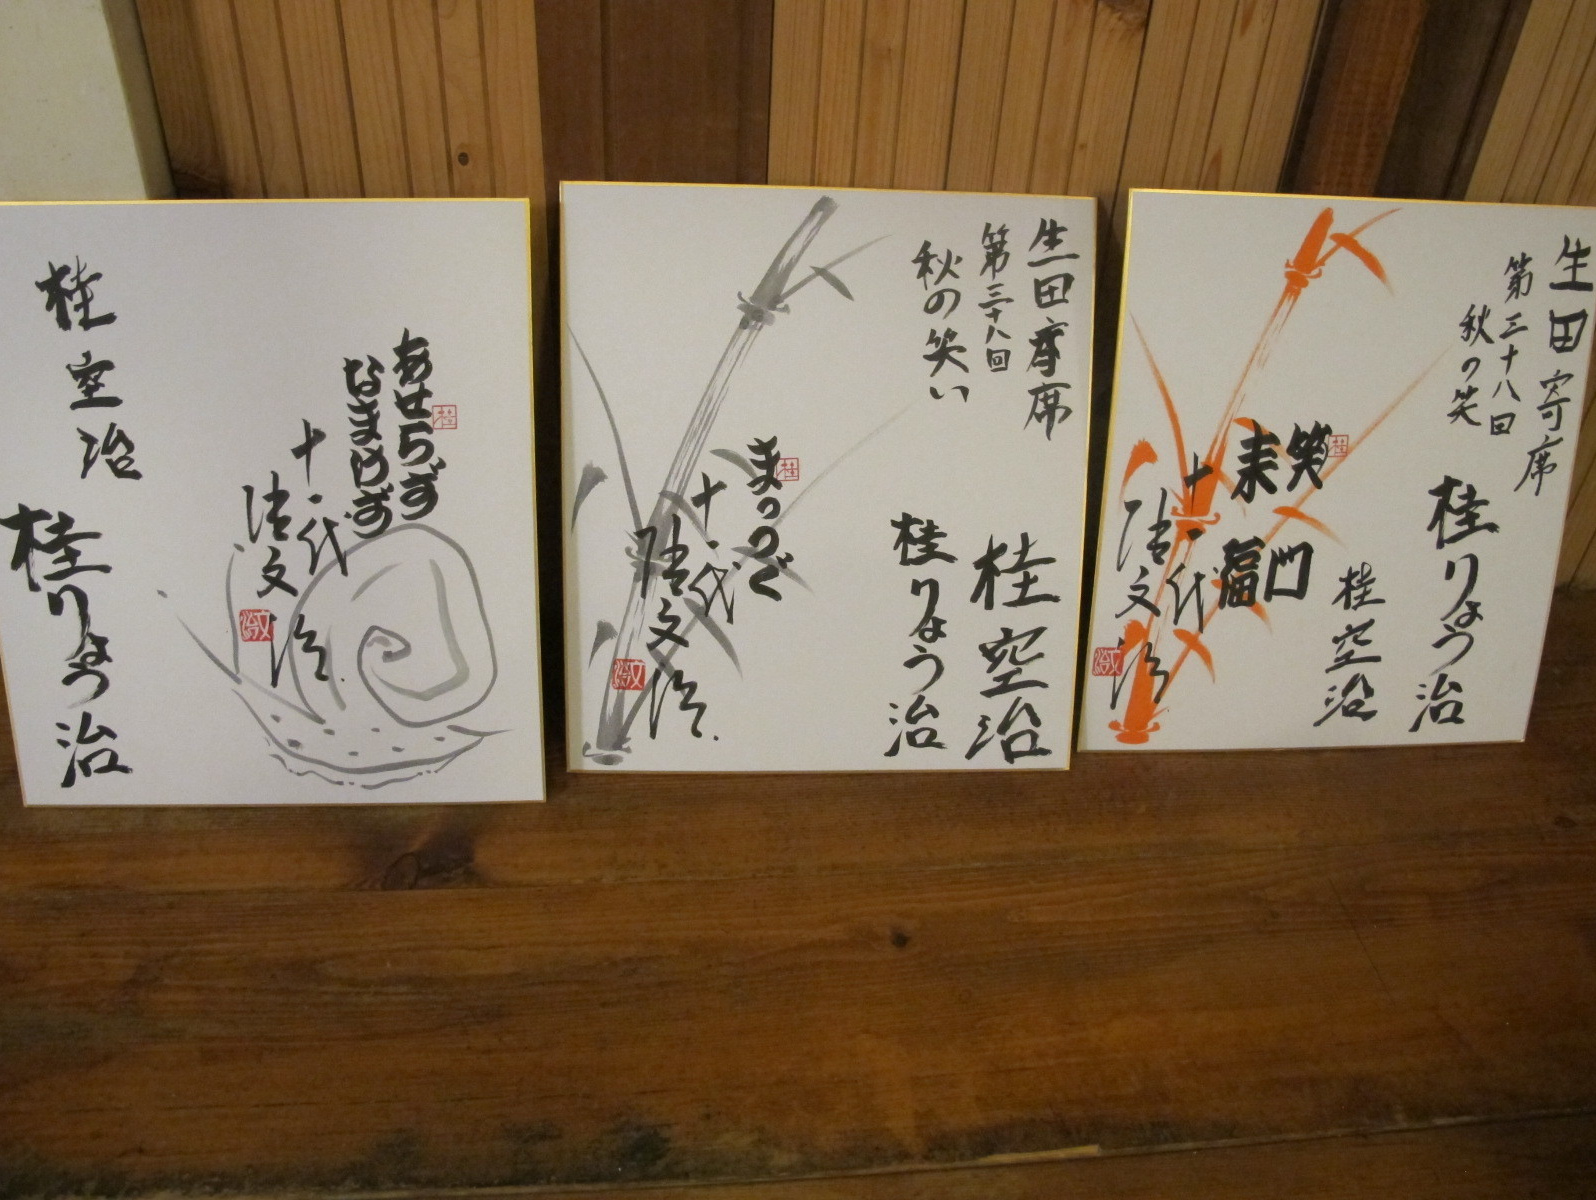 あせらず
なまけず
十一代
文治
桂空治
桂りょう治
生田寄席
第三十八回
秋の笑い
桂空治
桂りょう治
まっつぐ
十一代
文治
生田寄席
第三十八回
秋の笑
桂りょう治
桂空治
笑門
来福
十一代
文治